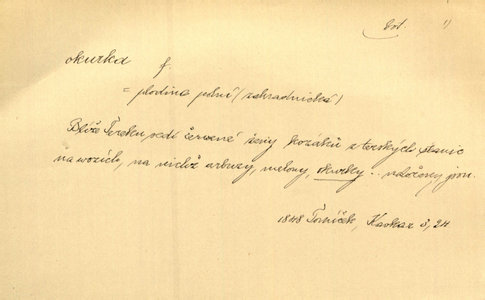 bot. 1)
okurka f.
= plodina polní (zahradnická)
Blíže Tereku sedí červené ženy kozáků z terských stanic
na vozích, na nichž arbuzy, melony, okurky .. naloženy jsou.
1848 Tomíček, Kavkaz 3, 24